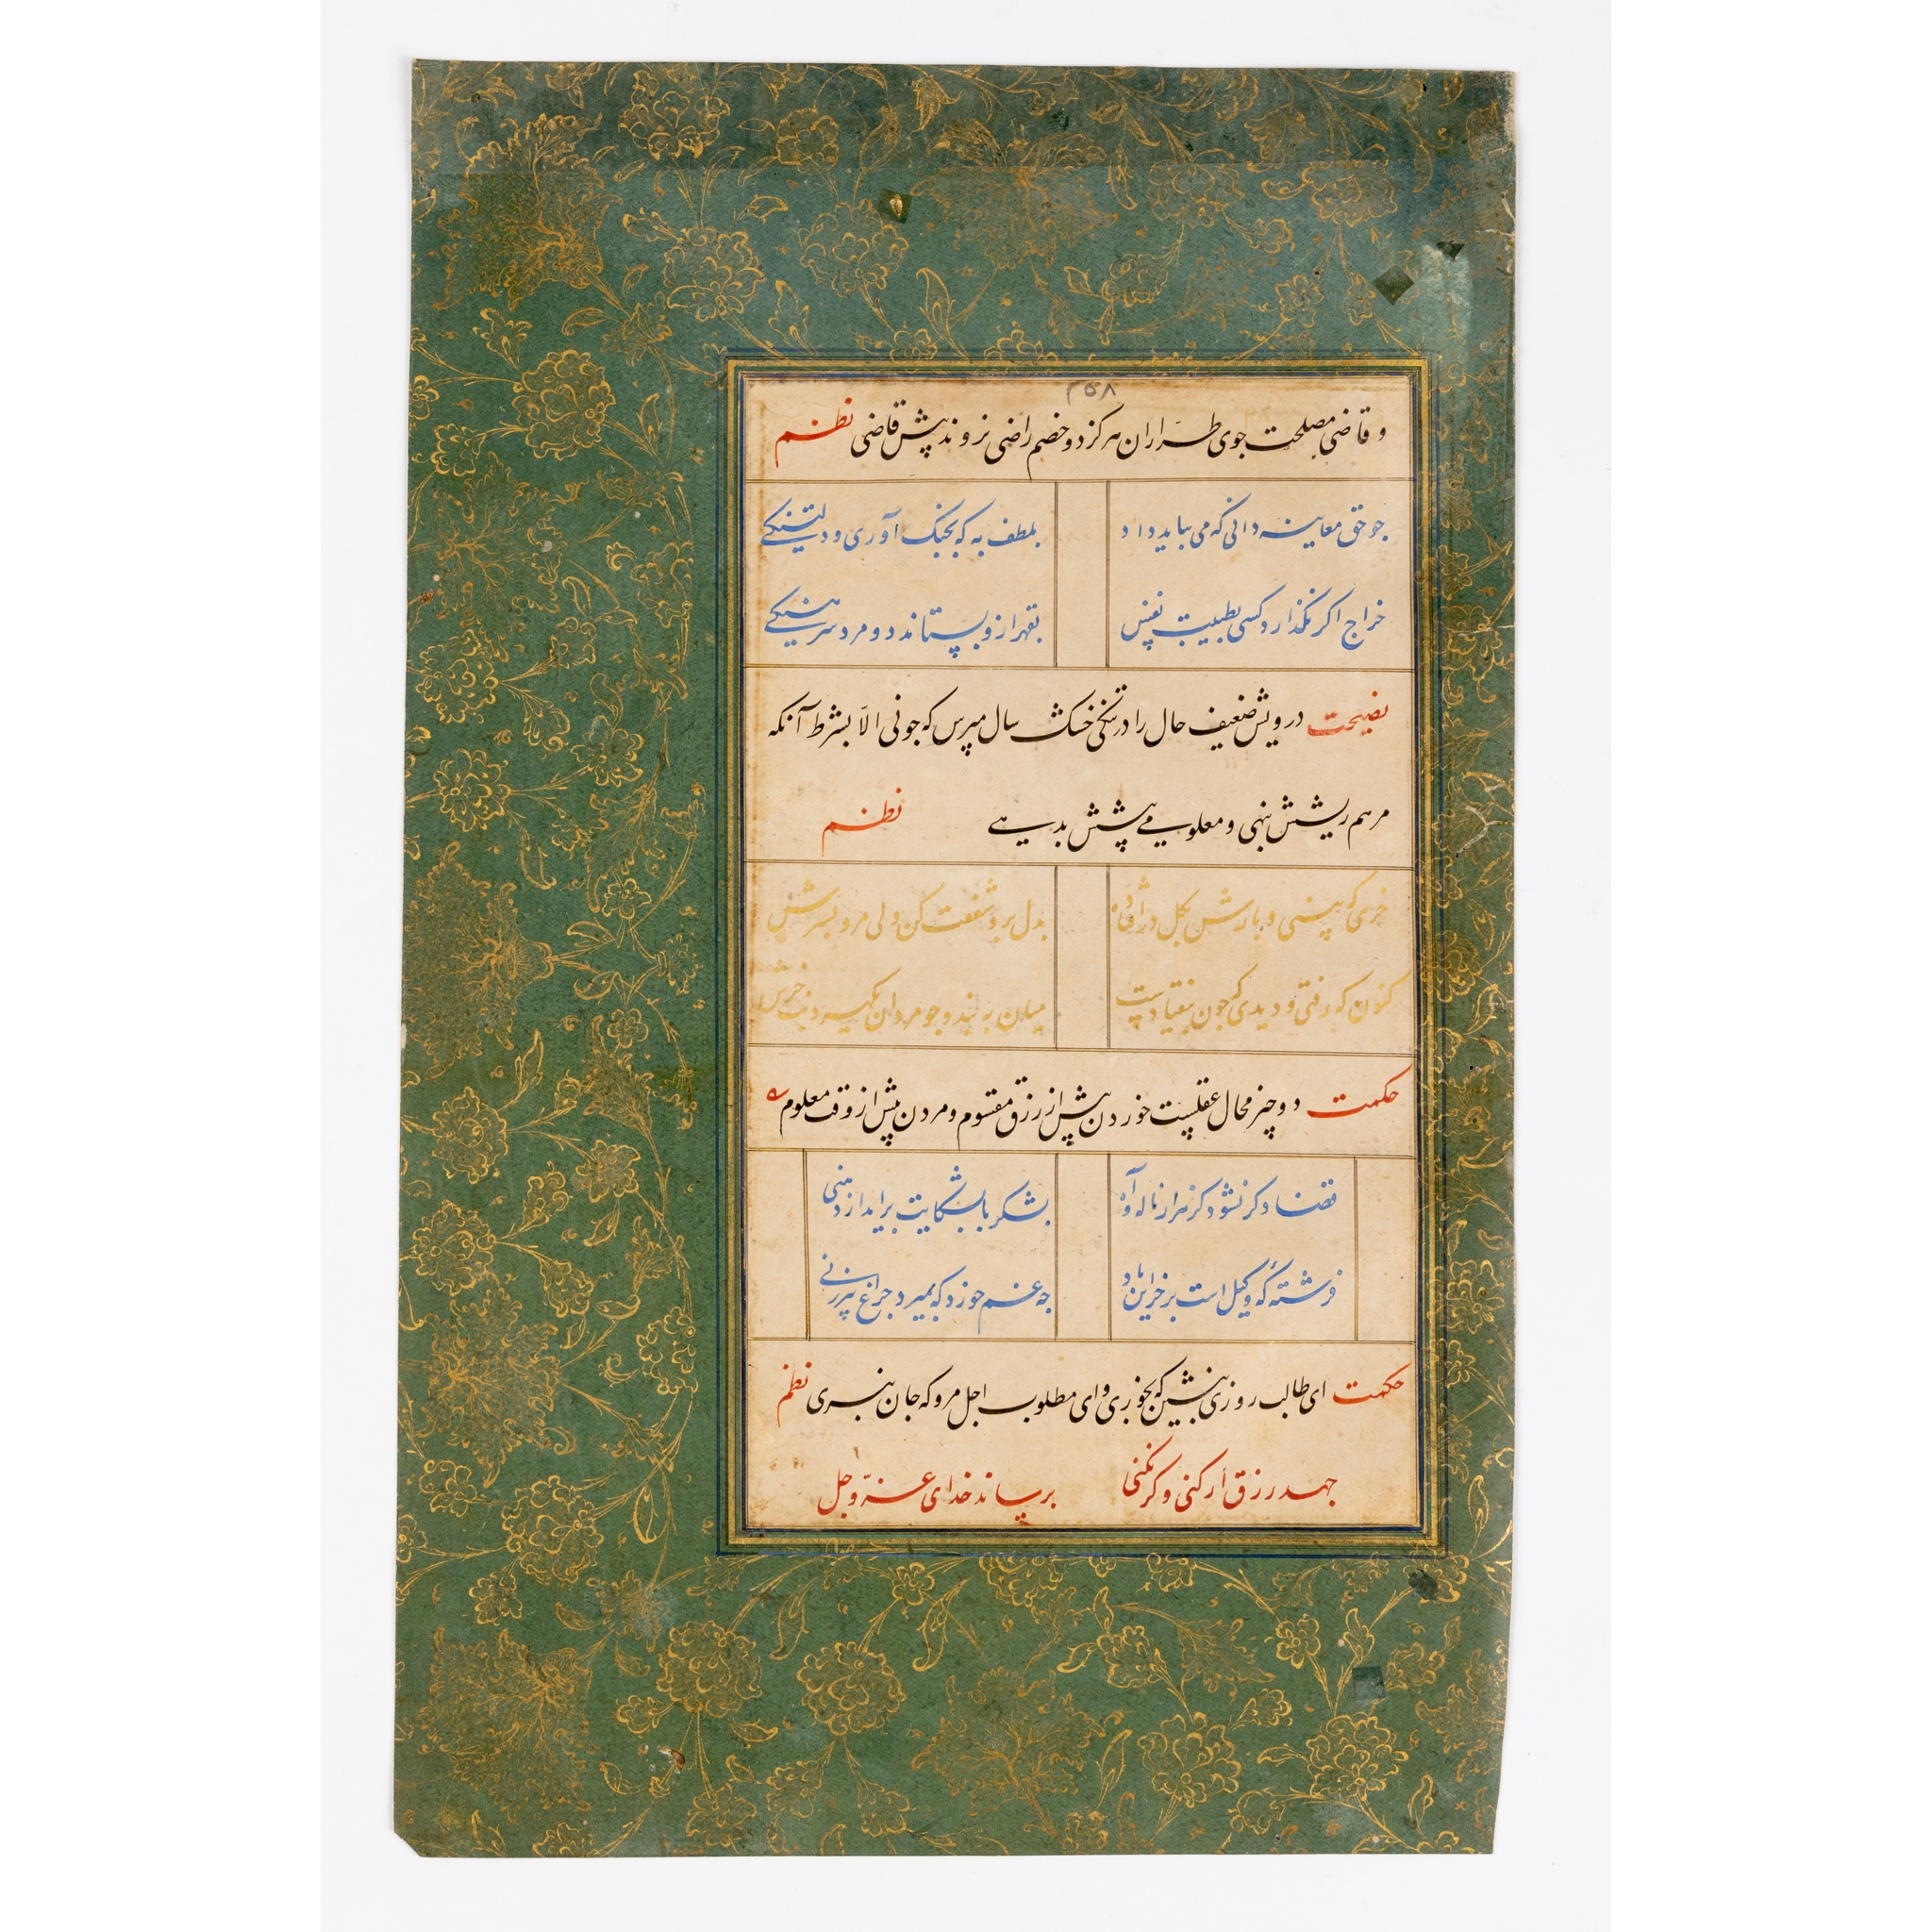 ۳۵۸
و قاضی مصلحت جوی طرّاران هرکز دو خصم راضی نروند پیش قاضی نظم
جو حق معاینه دانی که می بباید داد بلطف به که بجنک آوری و دلتنکی
خراج اکر نکذارد کسی بطیبت نفس بقهر ازو بستانند و مرد سرهنکی
نصیحت درویش ضعیف حال را در تنکی خشک سال مپرس که جونی الّا بشرط آنکه
مرهم ریشش بنهی و معلومی پیشش بدهی نظم
خری که بینی و بارش بکل در افتاده بدل برو شفقت کن ولی مرو بسرش
کنون که رفتی و دیدی که جون بیفتادست میان به بند و جو مردان بکیر دنب خرش
حکمت دو چیز محال عقلست خوردن پیش از رزق مقسوم و مردن پیش از وقت معلوم
قضا دکر نشود کر هزار ناله و آه بشکر یا بشکایت براید از دهنی
فرشته که وکیل است بر خزاین باد جه غم خورد که بمیرد جراغ پیرزنی
حکمت ای طالب روزی بنشین که بخوری و ای مطلوب اجل مرو که جان نبری نظم
جهد رزق ار کنی و کر نکنی برساند خدای عزّ و جل